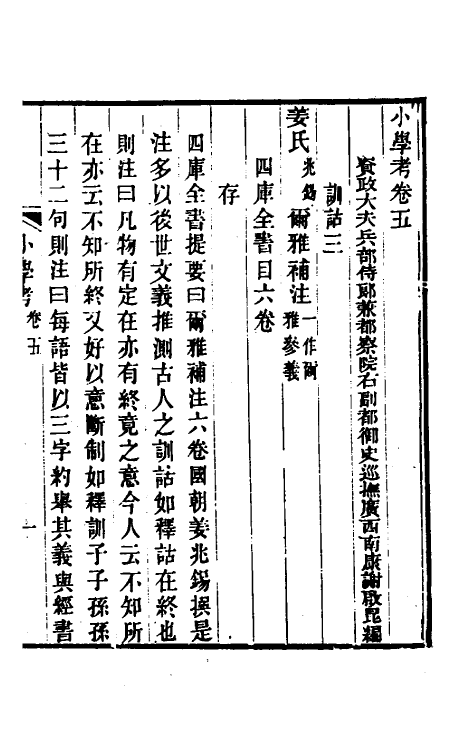 小學考卷五
資政大夫兵部侍郎兼都察院右副都御史巡撫廣西南康謝啟昆編
訓詁三
姜氏兆錫爾雅補注一作爾雅參義
四庫全書目六卷
存
四庫全書提要曰爾雅補注六卷國朝姜兆錫撰是
注多以後世文義推測古人之訓詁如釋詁在終也
則注曰凡物有定在亦有終竟之意今人云不知所
在亦云不知所終又好以意斷制如釋訓子子孫孫
三十二句則注曰每語皆以三字約舉其義與經書
小學考 卷五 一